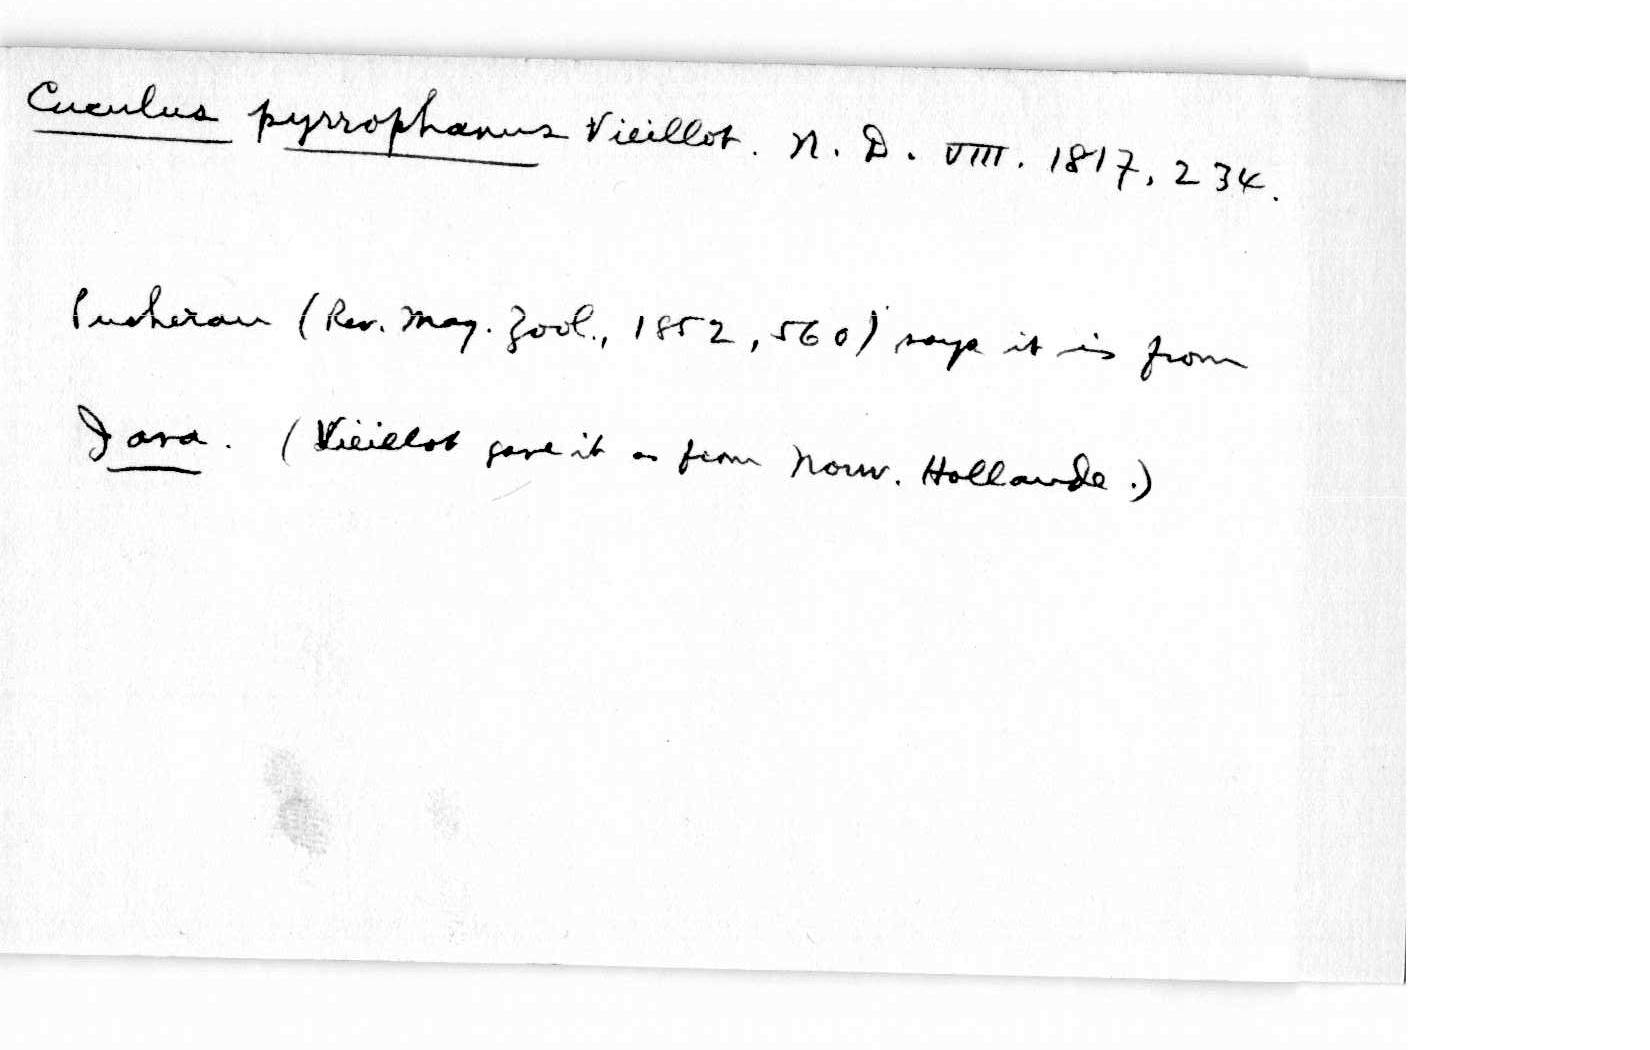 Cuculus pyrrophanus Vieillot. N. D. VIII. 1817, 234.
Pucheran (Rev. Mag. Zool., 1852, 560) says it is from
Java. (Vieillot gave it as from Nouv. Hollande.)